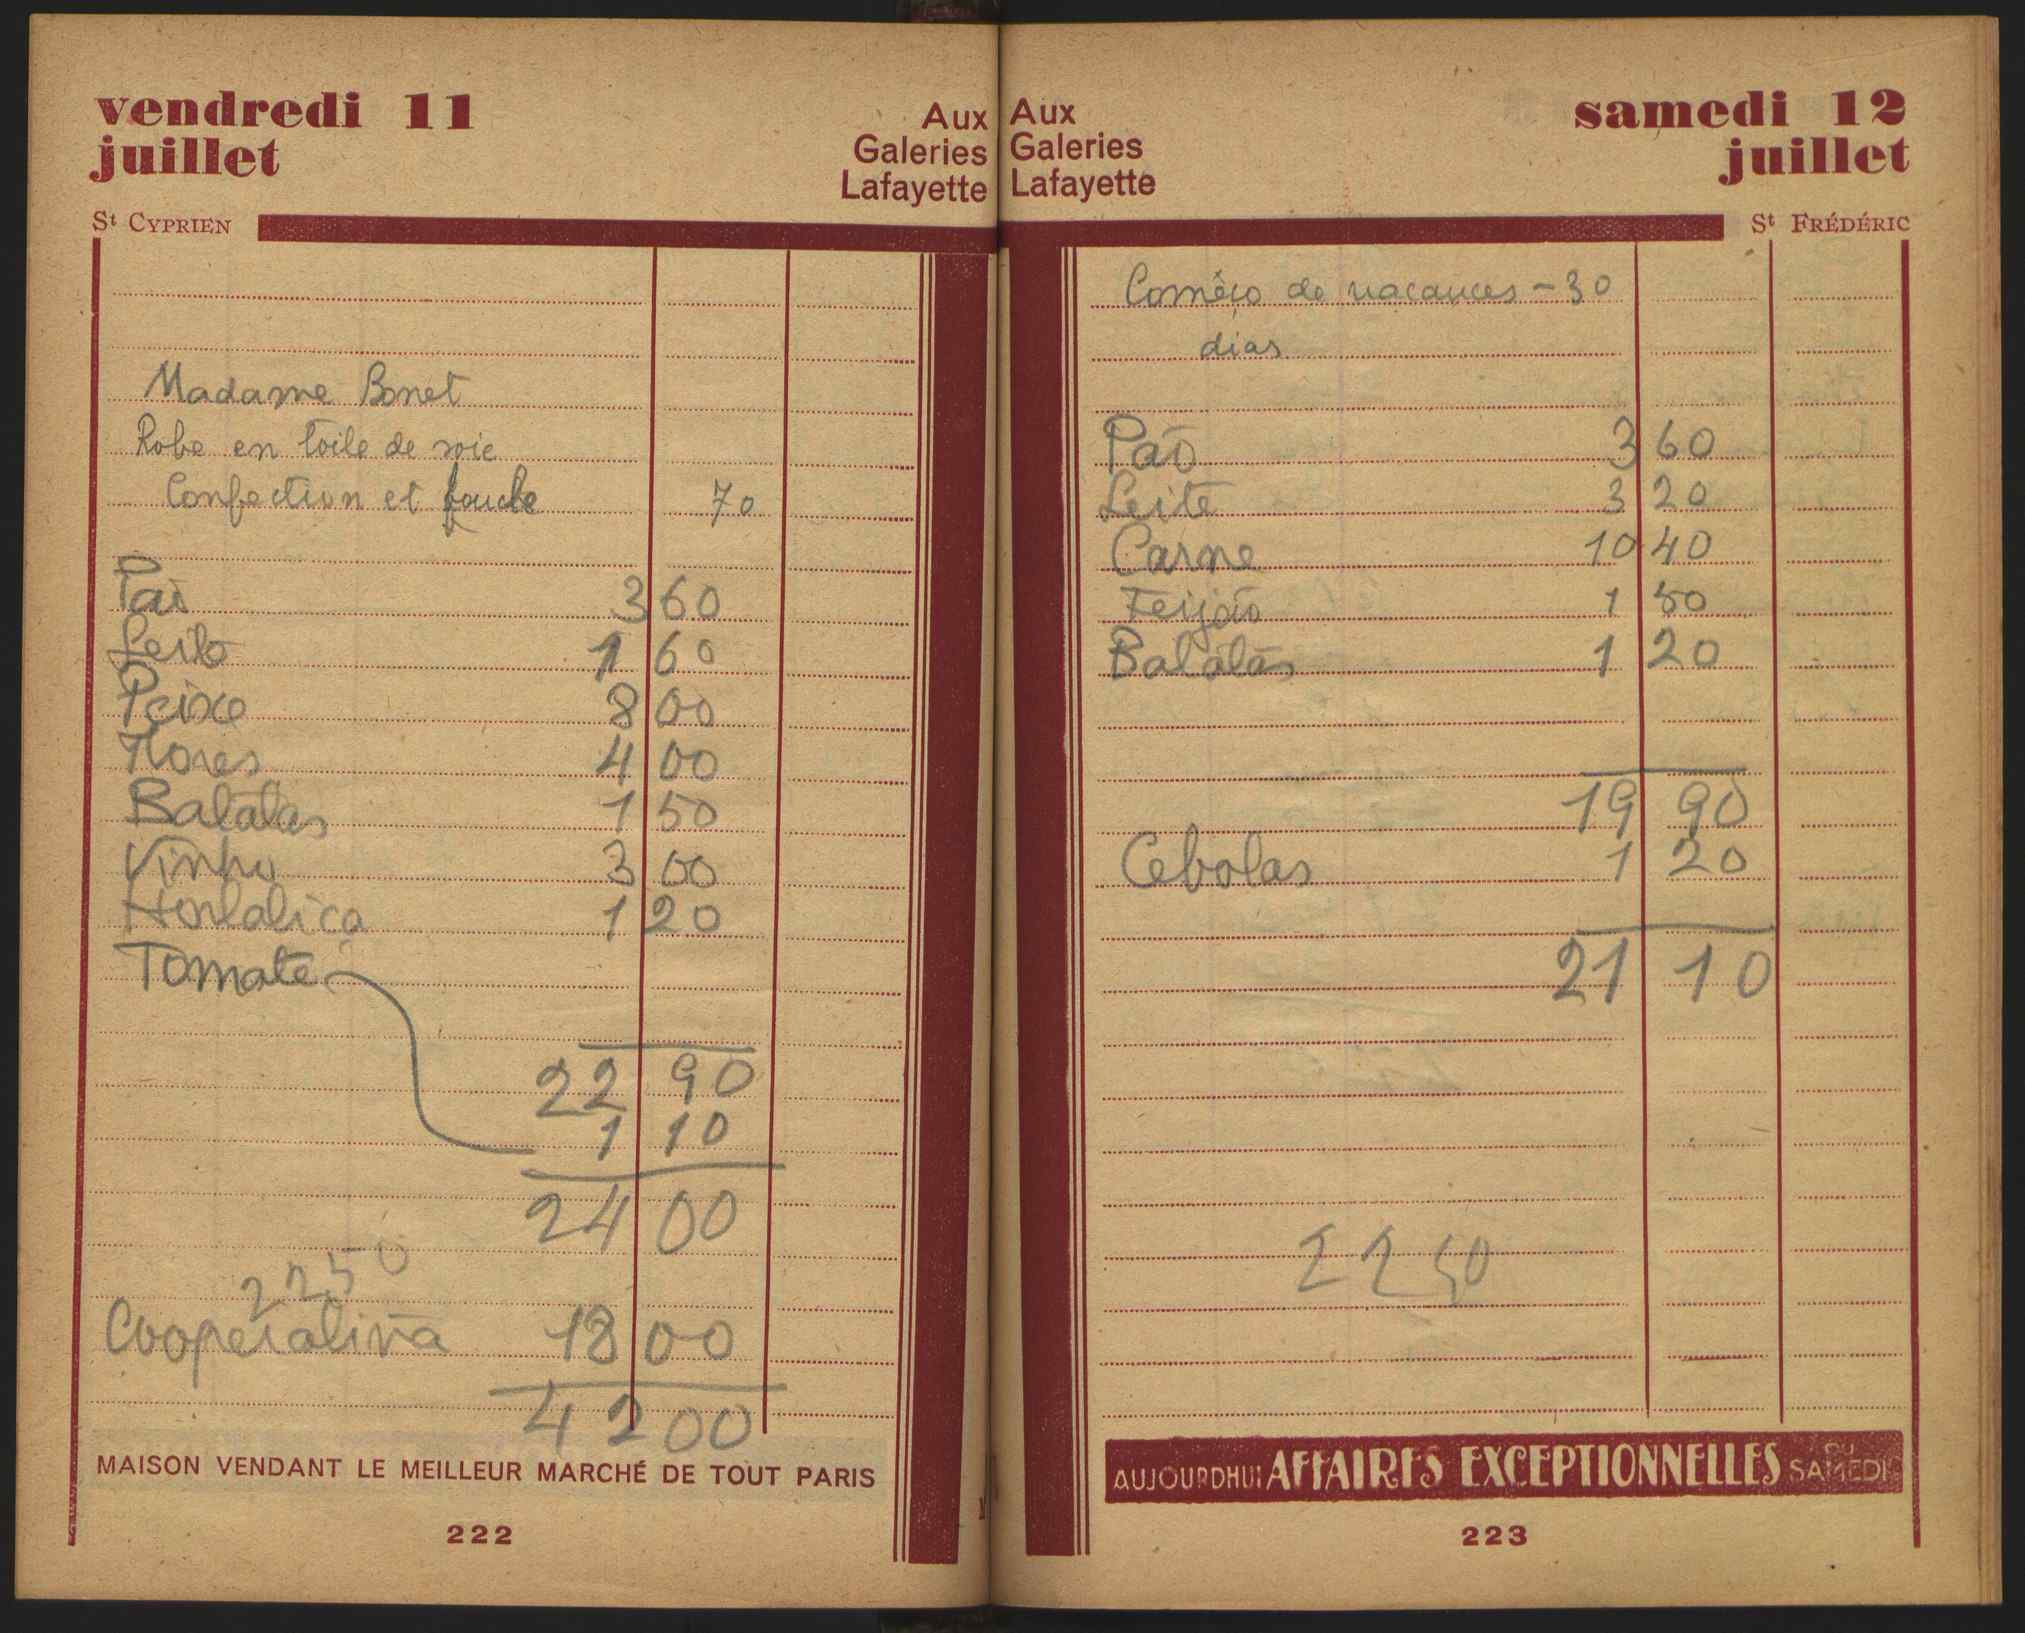 vendredi 11
juillet
Aux
Galeries
Lafayette
St CYPRIEN
Madame Bonet
Robe en toile de soie
Confection et 70
Pão 3 60
Leite 1 60
Peixe 8 00
Flores 4 00
Batatas 1 50
Vinho 3 00
Hortaliça 1 20
Tomate
22 90
1 10
24 00
22 50
Cooperativa 18 00
42 00
MAISON VENDANT LE MEILLEUR MARCHÉ DE TOUT PARIS
222
Aux
Galeries
Lafayette
samedi 12
juillet
St FRÉDÉRIC
Coméço de vacances - 30
dias
Pão 3 60
Leite 3 20
Carne 10 40
Feijão 1 50
Batatas 1 20
19 90
Cebolas 1 20
21 10
22 50
AUJOURDHUI AFFAIRES EXCEPTIONNELLES DU SAMEDI
223